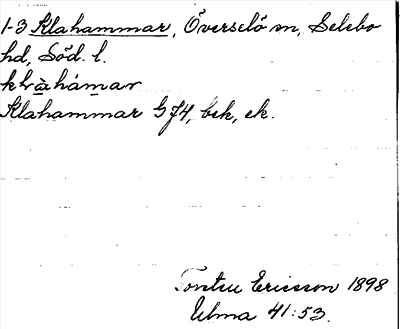 1-3 Klahammar, Överselö sn, Selebo
hd, Söd. l.
klràhámar
Klahammar G74, bek, ek.
Torsten Ericsson 1898
Ulma 41:53.